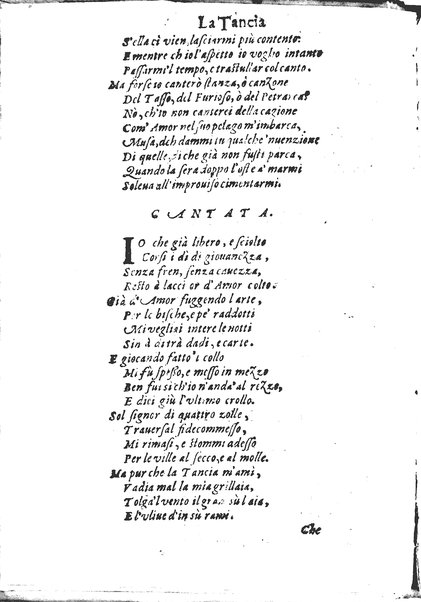 La Tancia
S'ella ci vien, lasciarmi più contento.
E mentre ch'io l'aspetto io voglio intanto
Passarmi'l tempo, e trastullar col canto.
Ma forse io canterò stanza, ò canzone
Del Tasso, del Furioso, ò del Petrarca?
Nò, ch'io non canterei della cagione
Com' Amor nel suo pelago m'imbarca,
Musa, deh dammi tu qualche 'nuenzione
Di quelle, di che già non fusti parca,
Quando la sera doppo l'oste a' marmi
Soleua all'improuiso cimentarmi.
CANTATA.
IO che già libero, e sciolto
Corsi i dì di giouanezza,
Senza fren, senza cauezza,
Resto à lacci or d'Amor colto.
Già d'Amor fuggendo l'arte,
Per le bische, e pe' raddotti
Mi vegliai intere le notti
Sin à otta dadi, e carte.
E giocando fatto'l collo
Mi fù spesso, e messo in mezzo
Ben fui sich'io n'andà' al rezzo,
E diei giù l'vltimo crollo.
Sol signor di quattro zolle,
Trauersal fidecommesso,
Mi rimasi, e stommi adesso
Per le ville al secco, e al molle.
Ma pur che la Tancia m'ami,
Vadia mal la mia grillaia,
Tolga'l vento il gran sù l'aia,
E l'vliue d'in sù rami.
Che